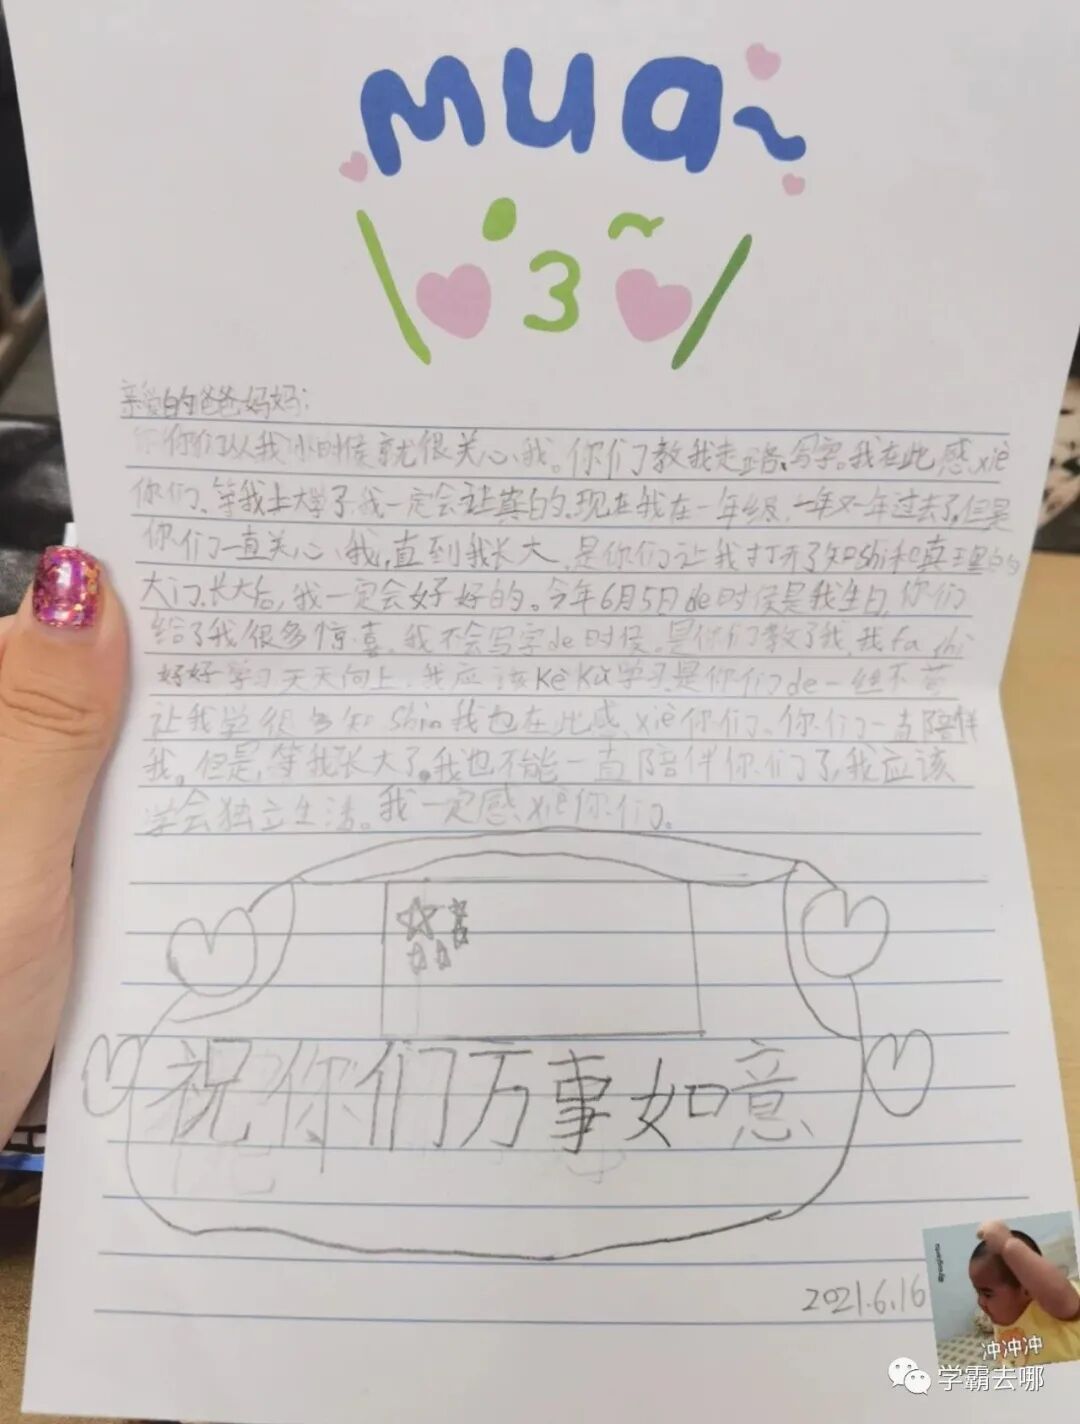 mua~
3
亲爱的爸爸妈妈：
你们从我小时候就很关心我。你们教我走路、写字。我在此感xiè
你们。等我上大学了，我一定会让真的。现在我在一年级，一年又一年过去了，但是
你们一直关心我，直到我长大，是你们让我打开了知Shi和真理的
大门，长大后，我一定会好好的。今年6月5日de时侯是我生日，你们
给了我很多惊喜。我不会写字de时侯。是你们教了我，我fa shi
好好学习天天向上，我应该Kè Kǔ学习，是你们de一丝不苟
让我学很多知Shi，我也在此感xiè你们。你们一直陪伴
我。但是，等我长大了。我也不能一直陪伴你们了，我应该
学会独立生活。我一定感xiè你们。
祝你们万事如意
2021.6.16
冲冲冲
学霸去哪